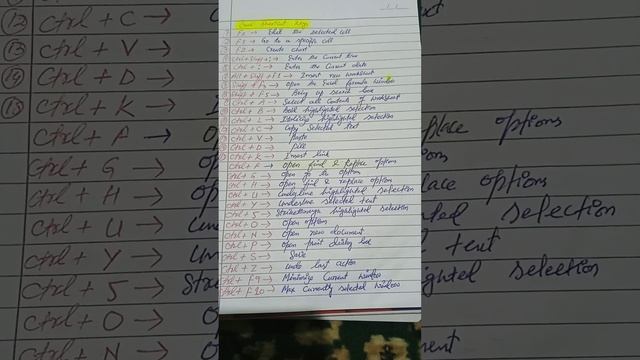 Excel Shortcut Keys
F2 → Edit the selected cell
F5 → Go to a specific cell
→ Create chart
Ctrl + Shift + ; → Enter the Current time
Ctrl + ; → Enter the Current date
Alt + Shift + F1 → Insert New Worksheet
Shift + F3 → Open the Excel formula window
Shift + F5 → Bring up search box
Ctrl + A → Select all Contents of Worksheet
Ctrl + B → Bold highlighted selection
Ctrl + I → Italicize highlighted selection
Ctrl + C → Copy Selected text
Ctrl + V → Paste
Ctrl + D → Fill
Ctrl + K → Insert link
Ctrl + F → Open find & replace options
Ctrl + G → Open go to options
Ctrl + H → Open find & replace options
Ctrl + U → Underline highlighted selection
Ctrl + Y → Underline selected text
Ctrl + 5 → Strikethrough highlighted selection
Ctrl + O → Open options
Ctrl + N → Open new document
Ctrl + P → Open print dialog box
Ctrl + S → Save
Ctrl + Z → Undo last action
Ctrl + F9 → Minimize Current window
Ctrl + F10 → Max Currently selected window
12 Ctrl + C →
13 Ctrl + V →
14 Ctrl + D →
15 Ctrl + K →
Ctrl + F →
Ctrl + G →
Ctrl + H →
Ctrl + U →
Ctrl + Y →
Ctrl + 5 →
Ctrl + O →
Ctrl + N →
place options
lace options
ted selection
text
ghted selection
ment